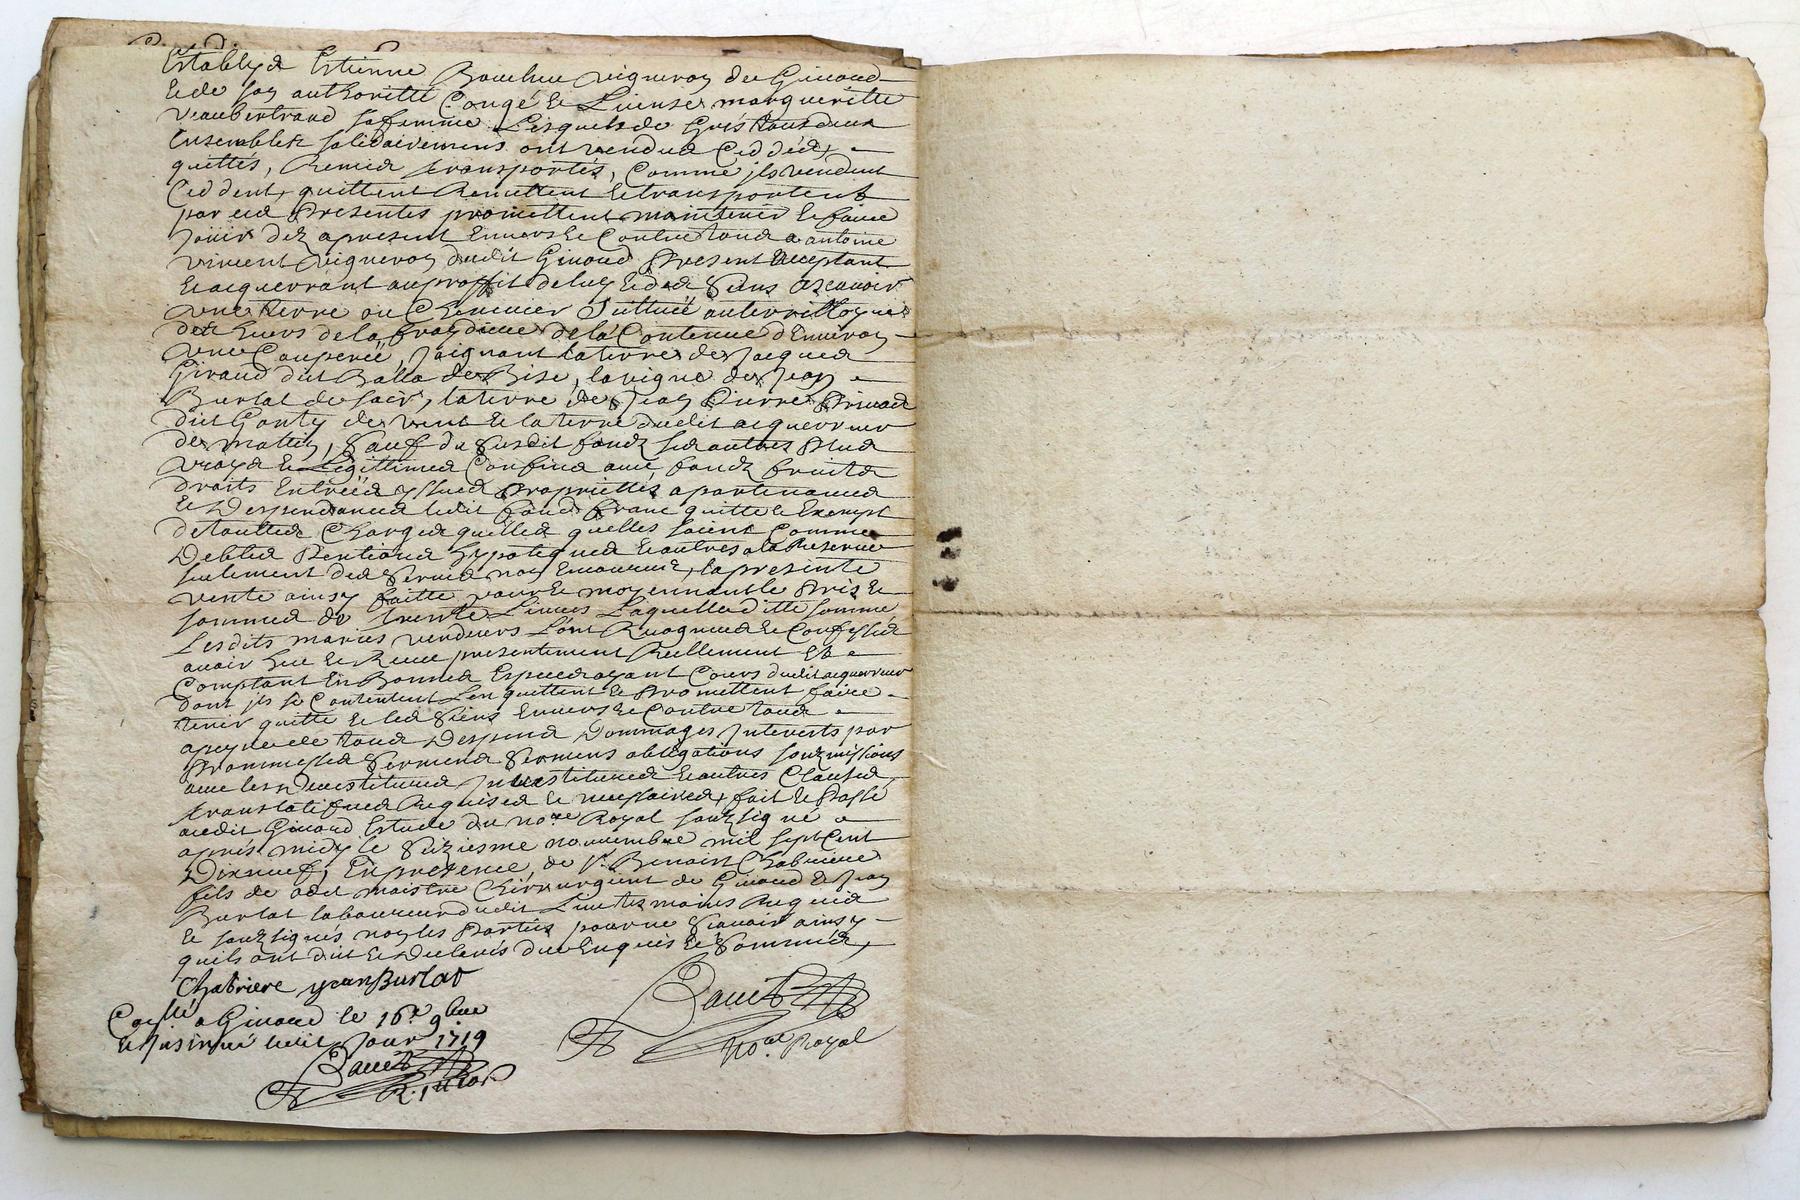 Establys Estienne Bouchu vigneron de Ginoud
Et de son authoritté Congé et License margueritte
Veaubertrand sa femme Lesquels de Grés tous deux
Ensembles solidairement ont vendus Ceddés,
quittés, Remis transportés, Comme ils vendent
Ceddent, quittent Remettent Et transportent
par ces Presentes promettent maintenir Et faire
joüir dez apresent Envers Et Contre tous a antoine
vincent vigneron dudit Ginoud Present acceptant
Et acquerrant au proffit de luy Et des siens ascavoir
une terre ou Chenevier Situué au territtoyre
de la Contenue d'Environ
une Couperée, joignant la terre de Jacques
Giraud dit Balla de Bise, la vigne de Jean
Burlat de soir, la terre de Jean Pierre
dit Gonty de vent Et la terre dudit acquerreur
de mattin, Sauf du Susdit fondz ses autres Plus
vrays Et Légittimes Confins avec fondz fruits
droits Entrées yssues Proprietés apartenances
Et Despendances ledit fond franc quitte Et Exempt
de touttes Charges quelles quelles soient Comme
Debtes Pentions hypoteques Et autres a la Reserve
seulement des Servis non Encourus, la presente
vente ainsy faitte pour Et moyennant le Pris Et
sommes de trente Livres Laquelle ditte somme
Lesdits mariés vendeurs L'ont Recogneus Et Confessés
avoir Heu Et Receu presentement Reellement Et
Comptant En Bonnes Especes ayant Cours dudit acquerreur
dont jls se Contentent L'en quittent Et Promettent faire
tenir quitte Et les Siens Envers Et Contre tous
a peyne de tous Despens Dommages Interests par
Prommesses Sermens obligations souzmissions
avec les Devestitures Investitures Et autres Clauses
translatifves Requises Et necessaires, fait Et Passé
audit Ginoud Estude du no.re Royal souzsigné
apres midy le Seiziesme novembre mil sept Cent
Dixneuf, En presence, de S.r Benoist Chabriere
fils de maistre Chirurgient de Ginoud Et Jean
Burlat laboureur dudit Lieu tesmoins Requis
Et souzsignés non les Parties pour ne Scavoir ainsy
quils ont dit Et Declarés due Enquis Et Sommés,
Chabriere jean Burlat
Con.llé a Ginoud le 16.e 9bre
Et Insinué ledit Jour 1719
no.re Royal